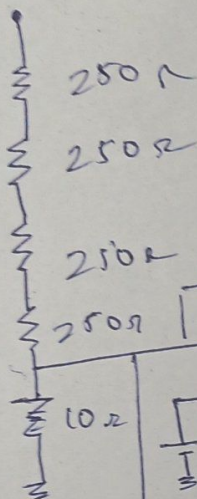 250Ω
250Ω
250Ω
250Ω
10Ω